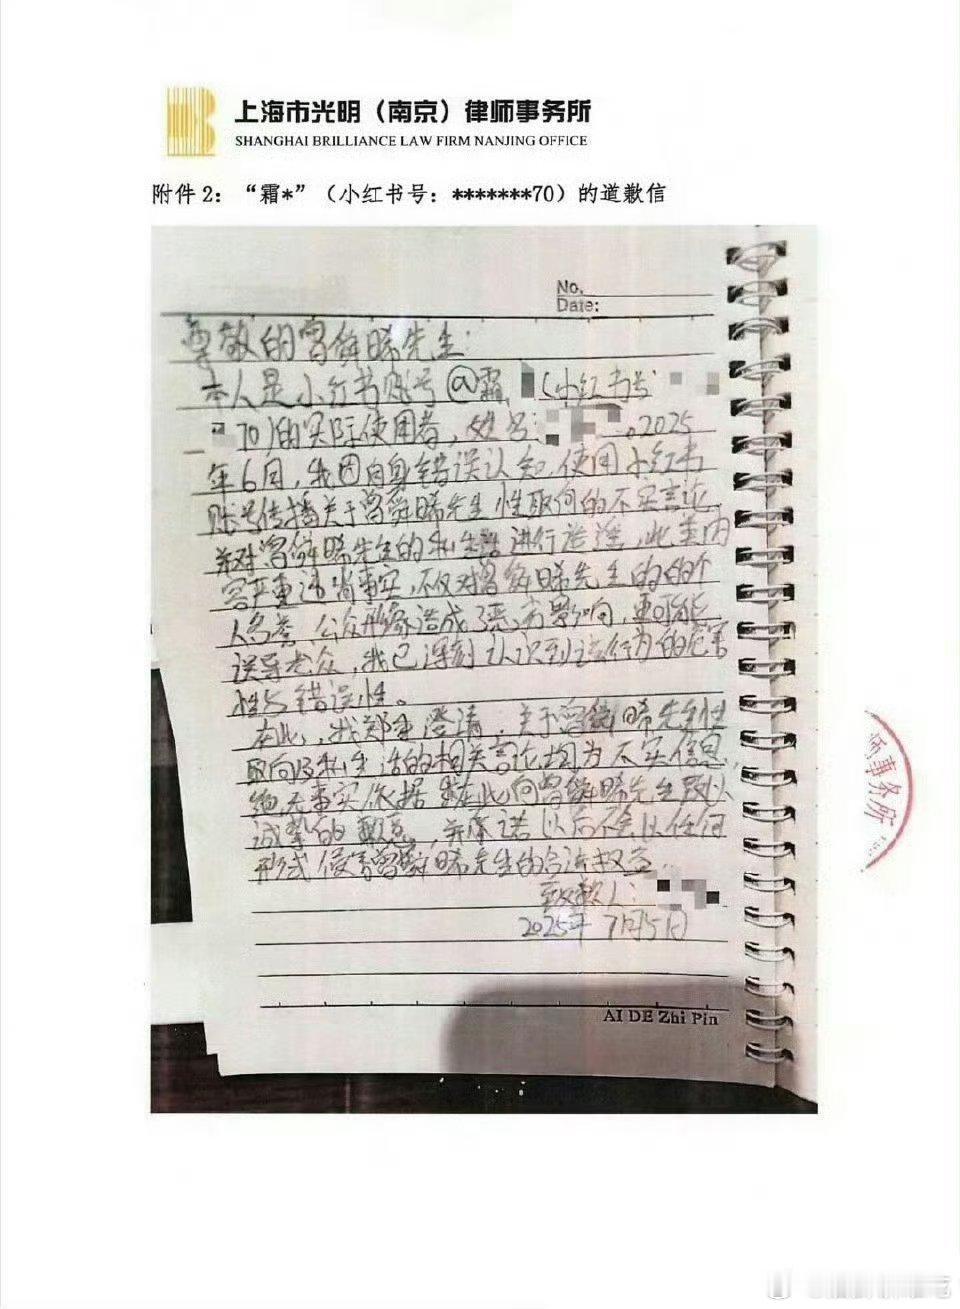 上海市光明（南京）律师事务所
SHANGHAI BRILLIANCE LAW FIRM NANJING OFFICE
附件 2：“霜*”（小红书号：*******70）的道歉信
No.
Date:
尊敬的曾舜晞先生：
本人是小红书账号@霜 （小红书号
70）的实际使用者，姓名： 。2025
年6月，我因自身错误认知，使用小红书
账号传播关于曾舜晞先生性取向的不实言论，
并对曾舜晞先生的私生活进行造谣，此类内
容严重违背事实，不仅对曾舜晞先生的的个
人名誉、公众形象造成了恶劣影响，更可能
误导公众，我已深刻认识到该行为的危害
性与错误性。
在此，我郑重澄清，关于曾舜晞先生性
取向及私生活的相关言论均为不实信息，
绝无事实依据。我在此向曾舜晞先生致以
诚挚的歉意，并承诺以后不会以任何
形式侵害曾舜晞先生的合法权益。
致歉人：
2025年7月5日
AI DE Zhi Pin
师事务所